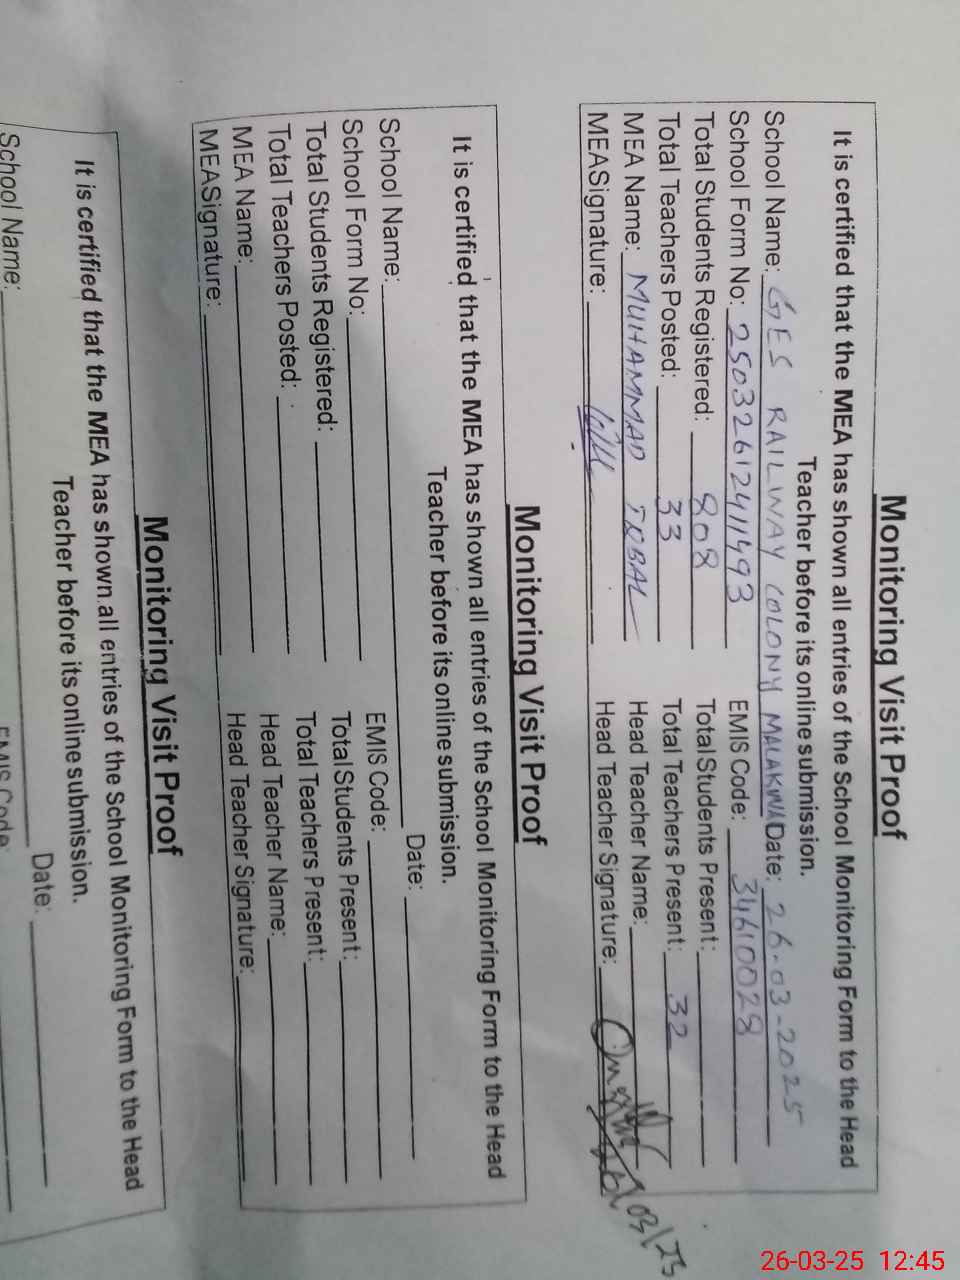 Monitoring Visit Proof
It is certified that the MEA has shown all entries of the School Monitoring Form to the Head
Teacher before its online submission.
School Name: GES RAILWAY COLONY MALAKWAL Date: 26-03-2025
School Form No: 25032612411493 EMIS Code: 34610028
Total Students Registered: 808 Total Students Present:
Total Teachers Posted: 33 Total Teachers Present: 32
MEA Name: MUHAMMAD IQBAL Head Teacher Name:
MEASignature: Head Teacher Signature:
03/25
Monitoring Visit Proof
It is certified that the MEA has shown all entries of the School Monitoring Form to the Head
Teacher before its online submission.
School Name: Date:
School Form No: EMIS Code:
Total Students Registered: Total Students Present:
Total Teachers Posted: Total Teachers Present:
MEA Name: Head Teacher Name:
MEASignature: Head Teacher Signature:
Monitoring Visit Proof
It is certified that the MEA has shown all entries of the School Monitoring Form to the Head
Teacher before its online submission.
School Name: Date:
EMIS Code:
26-03-25 12:45